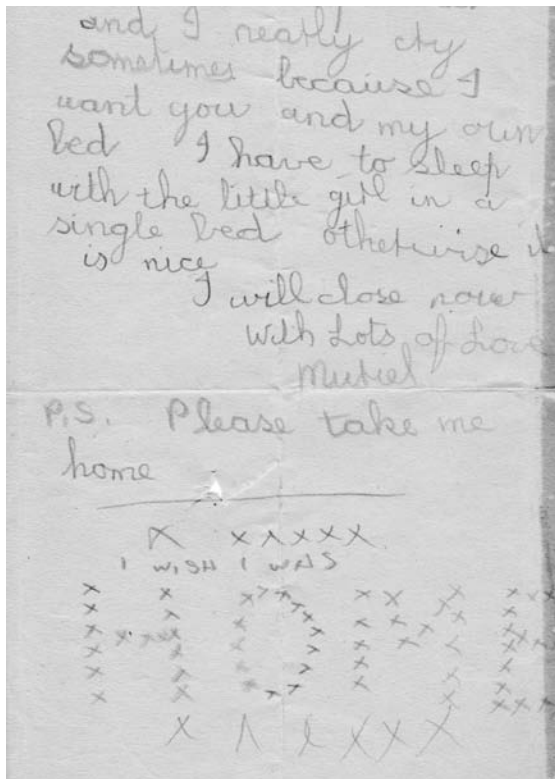 and I really cry
sometimes because I
want you and my own
bed I have to sleep
with the little girl in a
single bed otherwise it
is nice
I will close now
With Lots of Love
Muriel
P.S. Please take me
home
X XXXXX
I WISH I WAS
HOME
XXXXXX